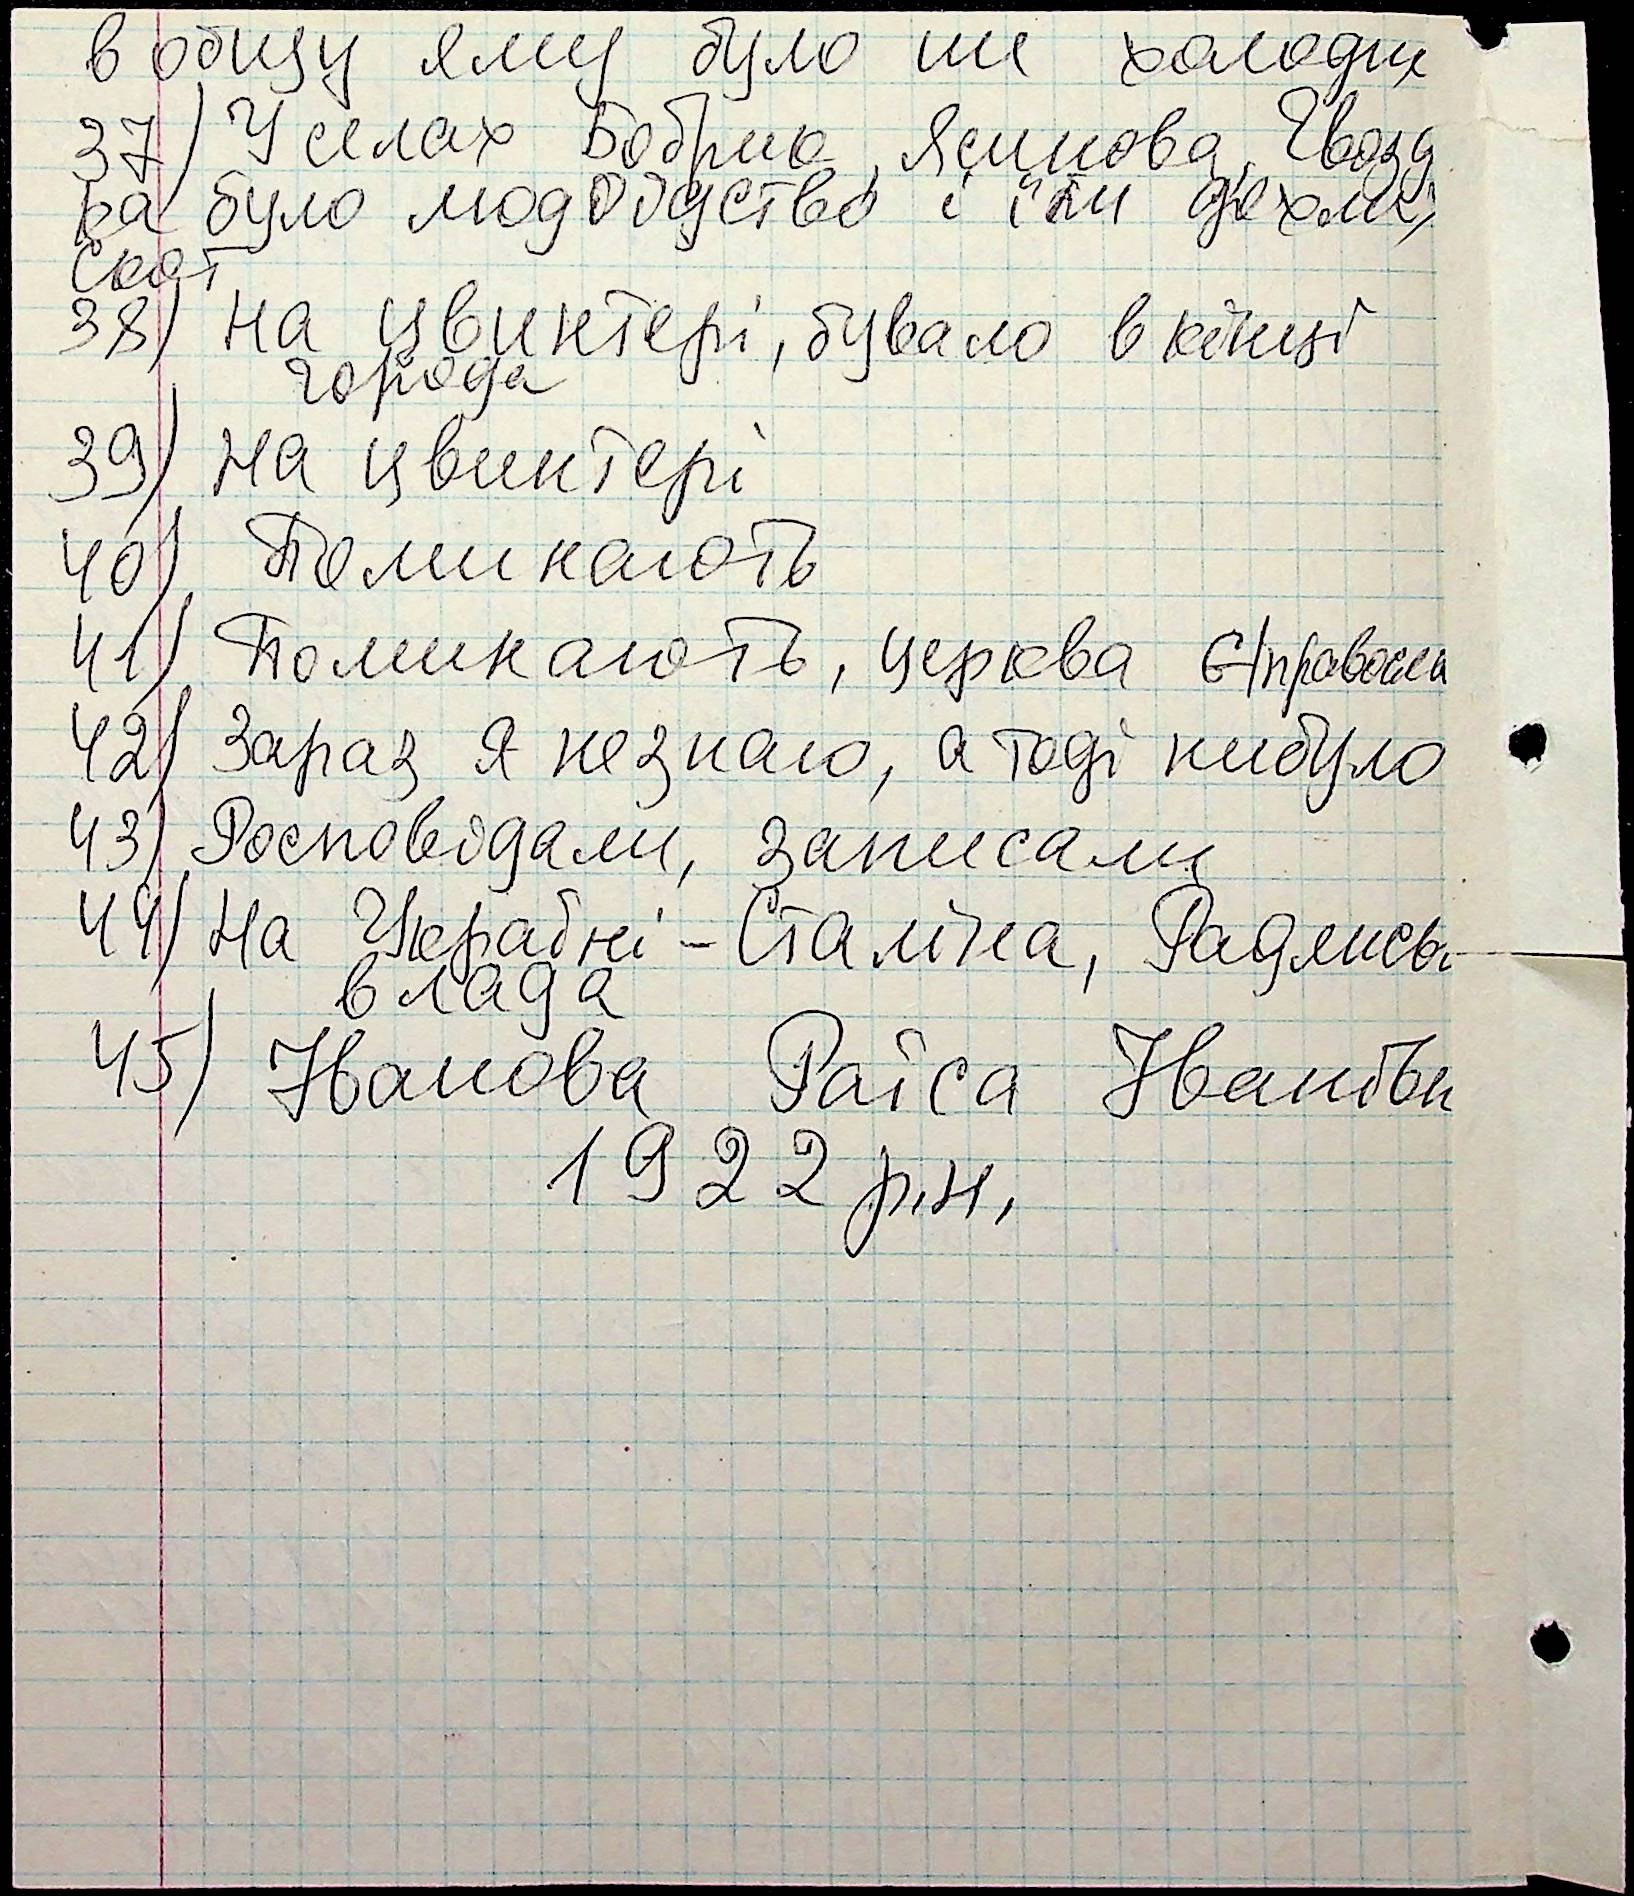 в общу яму було ше холодних
37) У селах Бобрик, Ясинова, Гвозд
ра було людоїдство і їли дохлий
скот
38) На цвинтері, бувало в кінці
города
39) На цвинтері
40) Поминають
41) Поминають, церква є/правосла
42) Зараз я незнаю, а тоді нибуло
43) Росповідали, записали
44) На Україні - Сталіна, Радянсь
влада
45) Іванова Раїса Іванівн
1922 р.н.